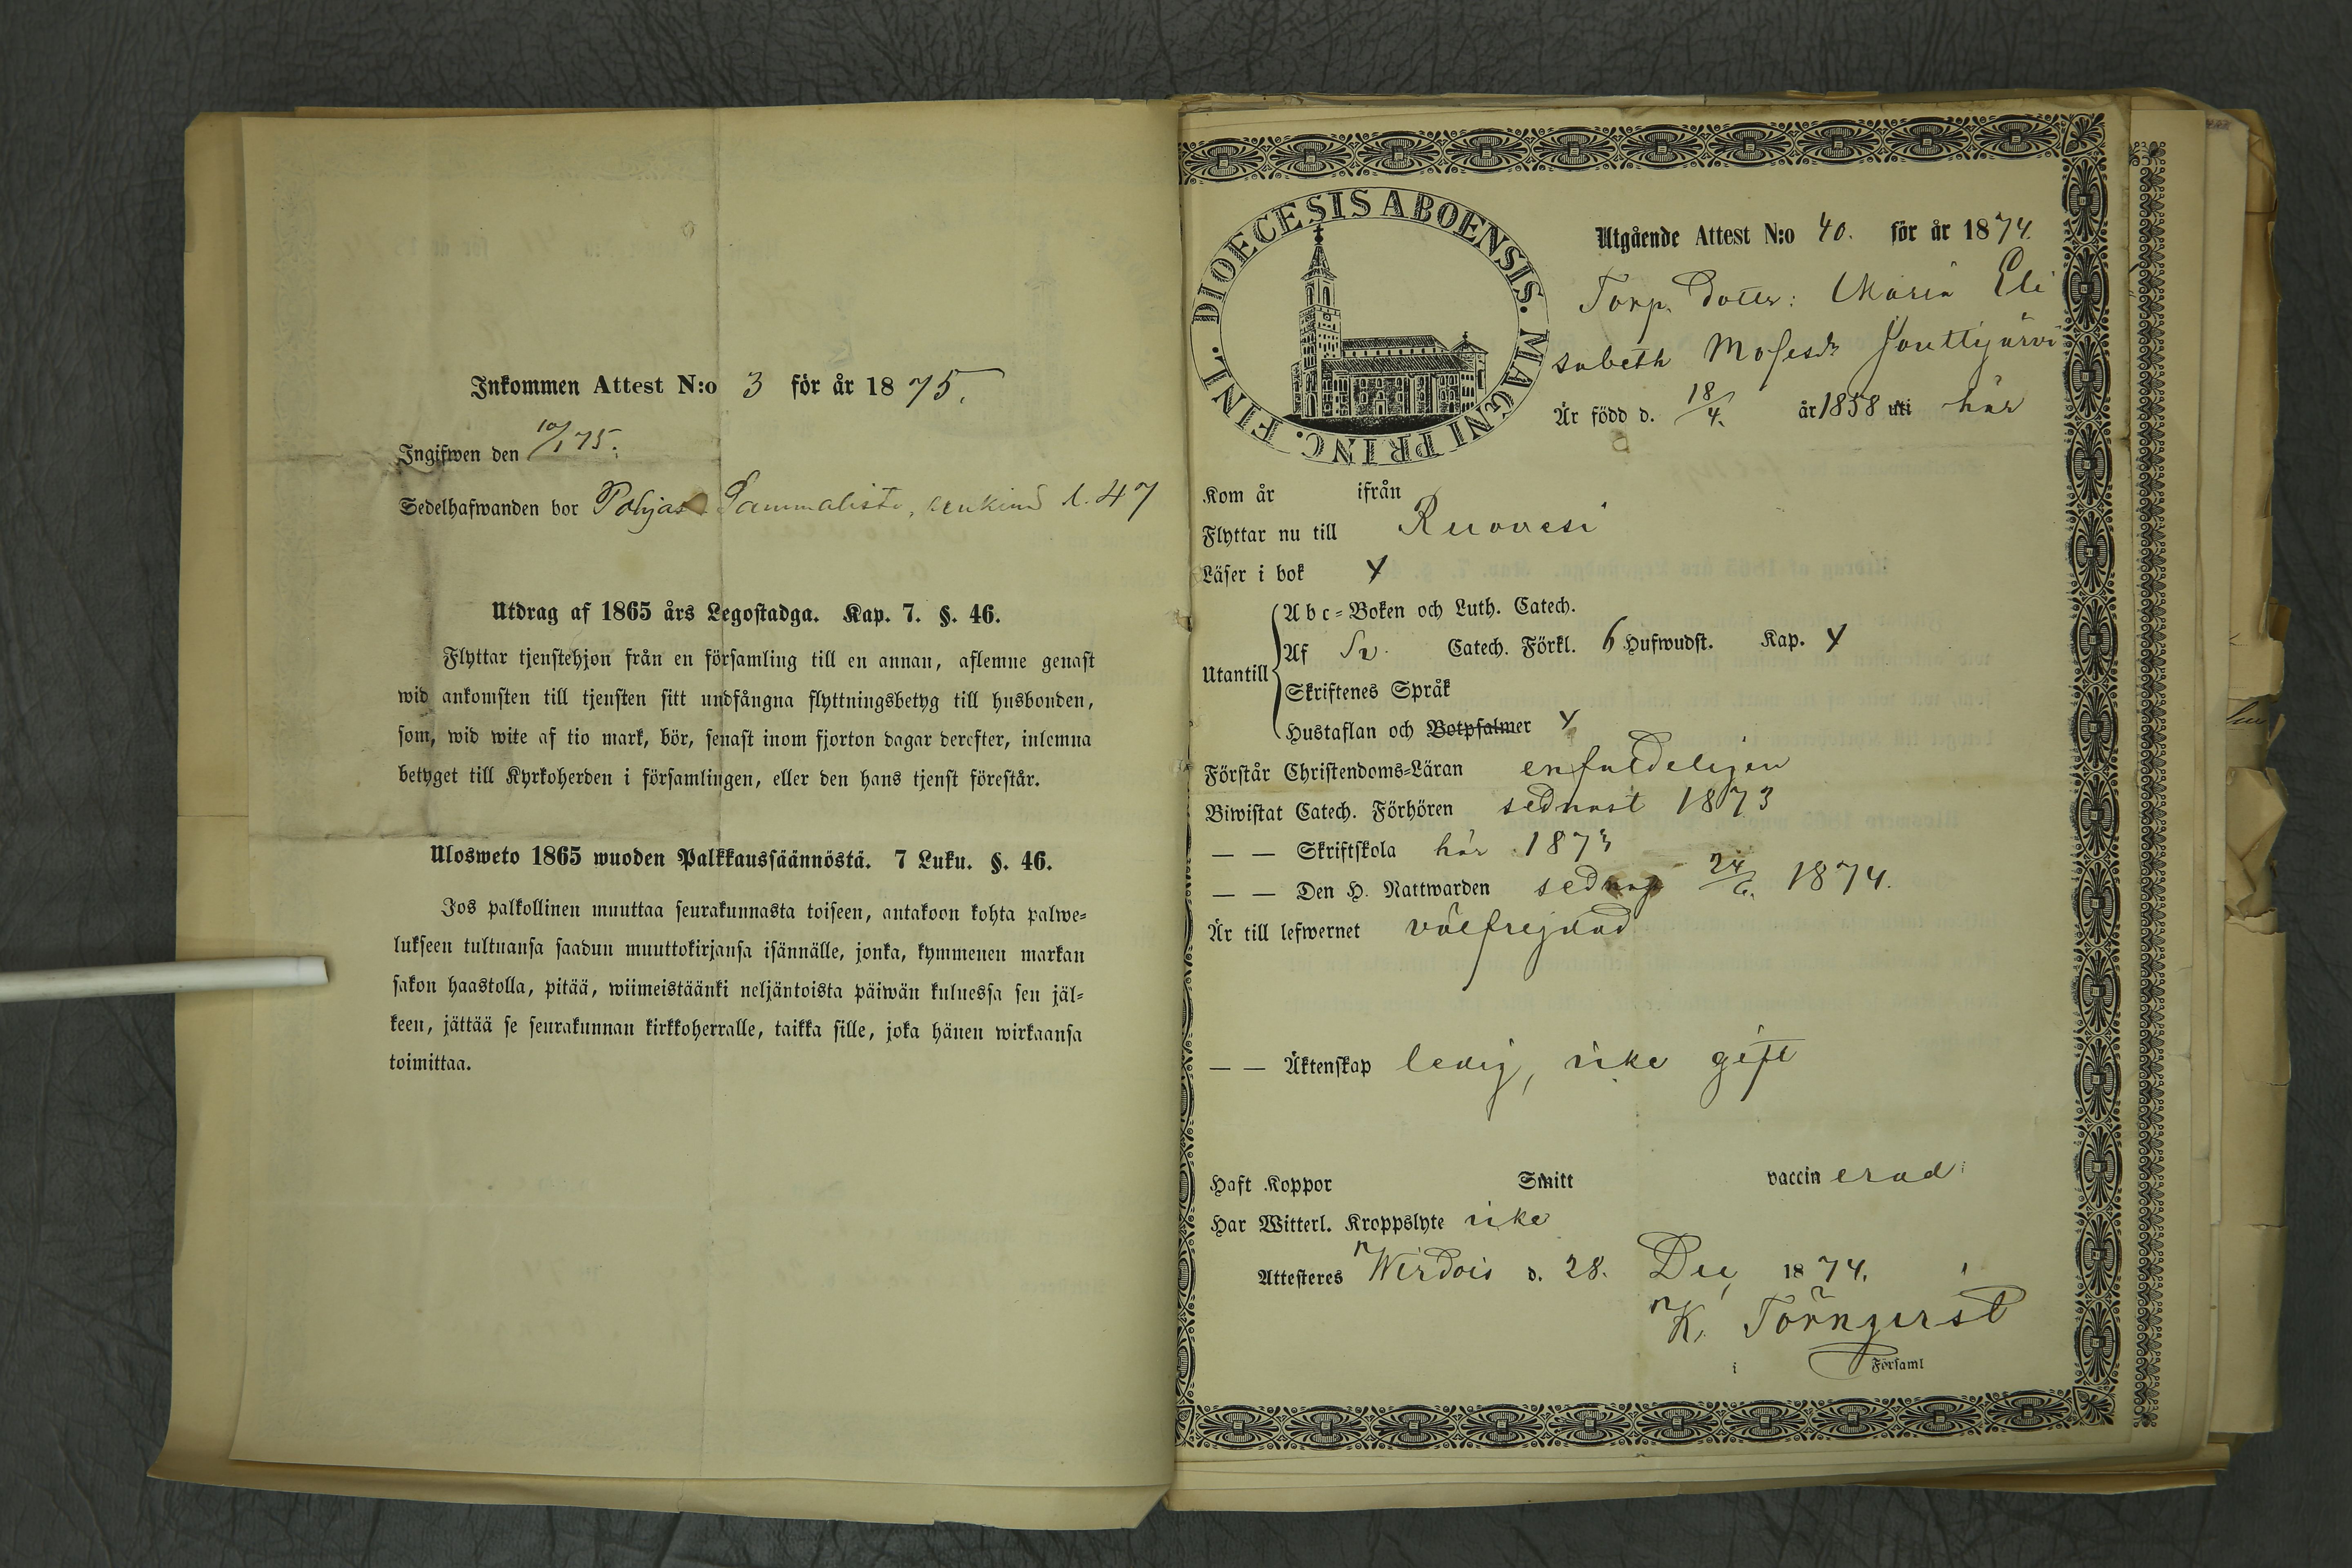 Inkommen Attest N:o 3 för år 1875.
Ingifwen den 10/1 75.
Sedelhafwanden bor Pohjas Sammalisto, l. 47
Utdrag af 1865 års Legostadga. Kap. 7. §. 46.
Flyttar tjenstehjon från en församling till en annan, aflemne genast
wid ankomsten till tjensten sitt undfångna flyttningsbetyg till husbonden,
som, wid wite af tio mark, bör, senast inom fjorton dagar derefter, inlemna
betyget till Kyrkoherden i församlingen, eller den hans tjenst förestår.
Ulosweto 1865 wuoden Palkkaussäännöstä. 7 Luku. §. 46.
Jos palkollinen muuttaa seurakunnasta toiseen, antakoon kohta palwe=
lukseen tultuansa saadun muuttokirjansa isännälle, jonka, kymmenen markan
sakon haastolla, pitää, wiimeistäänki neljäntoista päiwän kuluessa sen jäl=
keen, jättää se seurakunnan kirkkoherralle, taikka sille, joka hänen wirkaansa
toimittaa.
DIOECESIS ABOENSIS. MAGNI PRINC. FINL.
Utgående Attest N:o 40. för år 1874.
Torp. Dotter: Maria Eli
sabeth Mosesdr Jouttijärvi
Är född d. 18/4. år 1858 uti här
Kom år ifrån
Flyttar nu till Ruovesi
Läser i bok
Utantill
Abc=Boken och Luth. Catech.
Af Sv. Catech. Förkl. 6 Hufwudst. Kap.
Skriftenes Språk
Hustaflan och Botpsalmer
Förstår Christendoms=Läran enfaldeligen
Biwistat Catech. Förhören sednast 1873
— — Skriftskola här 1873
— — Den H. Nattwarden sednast 24/6. 1874.
Är till lefwernet välfrejdad
— — Äktenskap ledig, icke gift
Haft Koppor Smitt vaccinerad
Har Witterl. Kroppslyte icke
Attesteres Wirdois d. 28. Dec 1874.
K. Törnqvist
i Församl